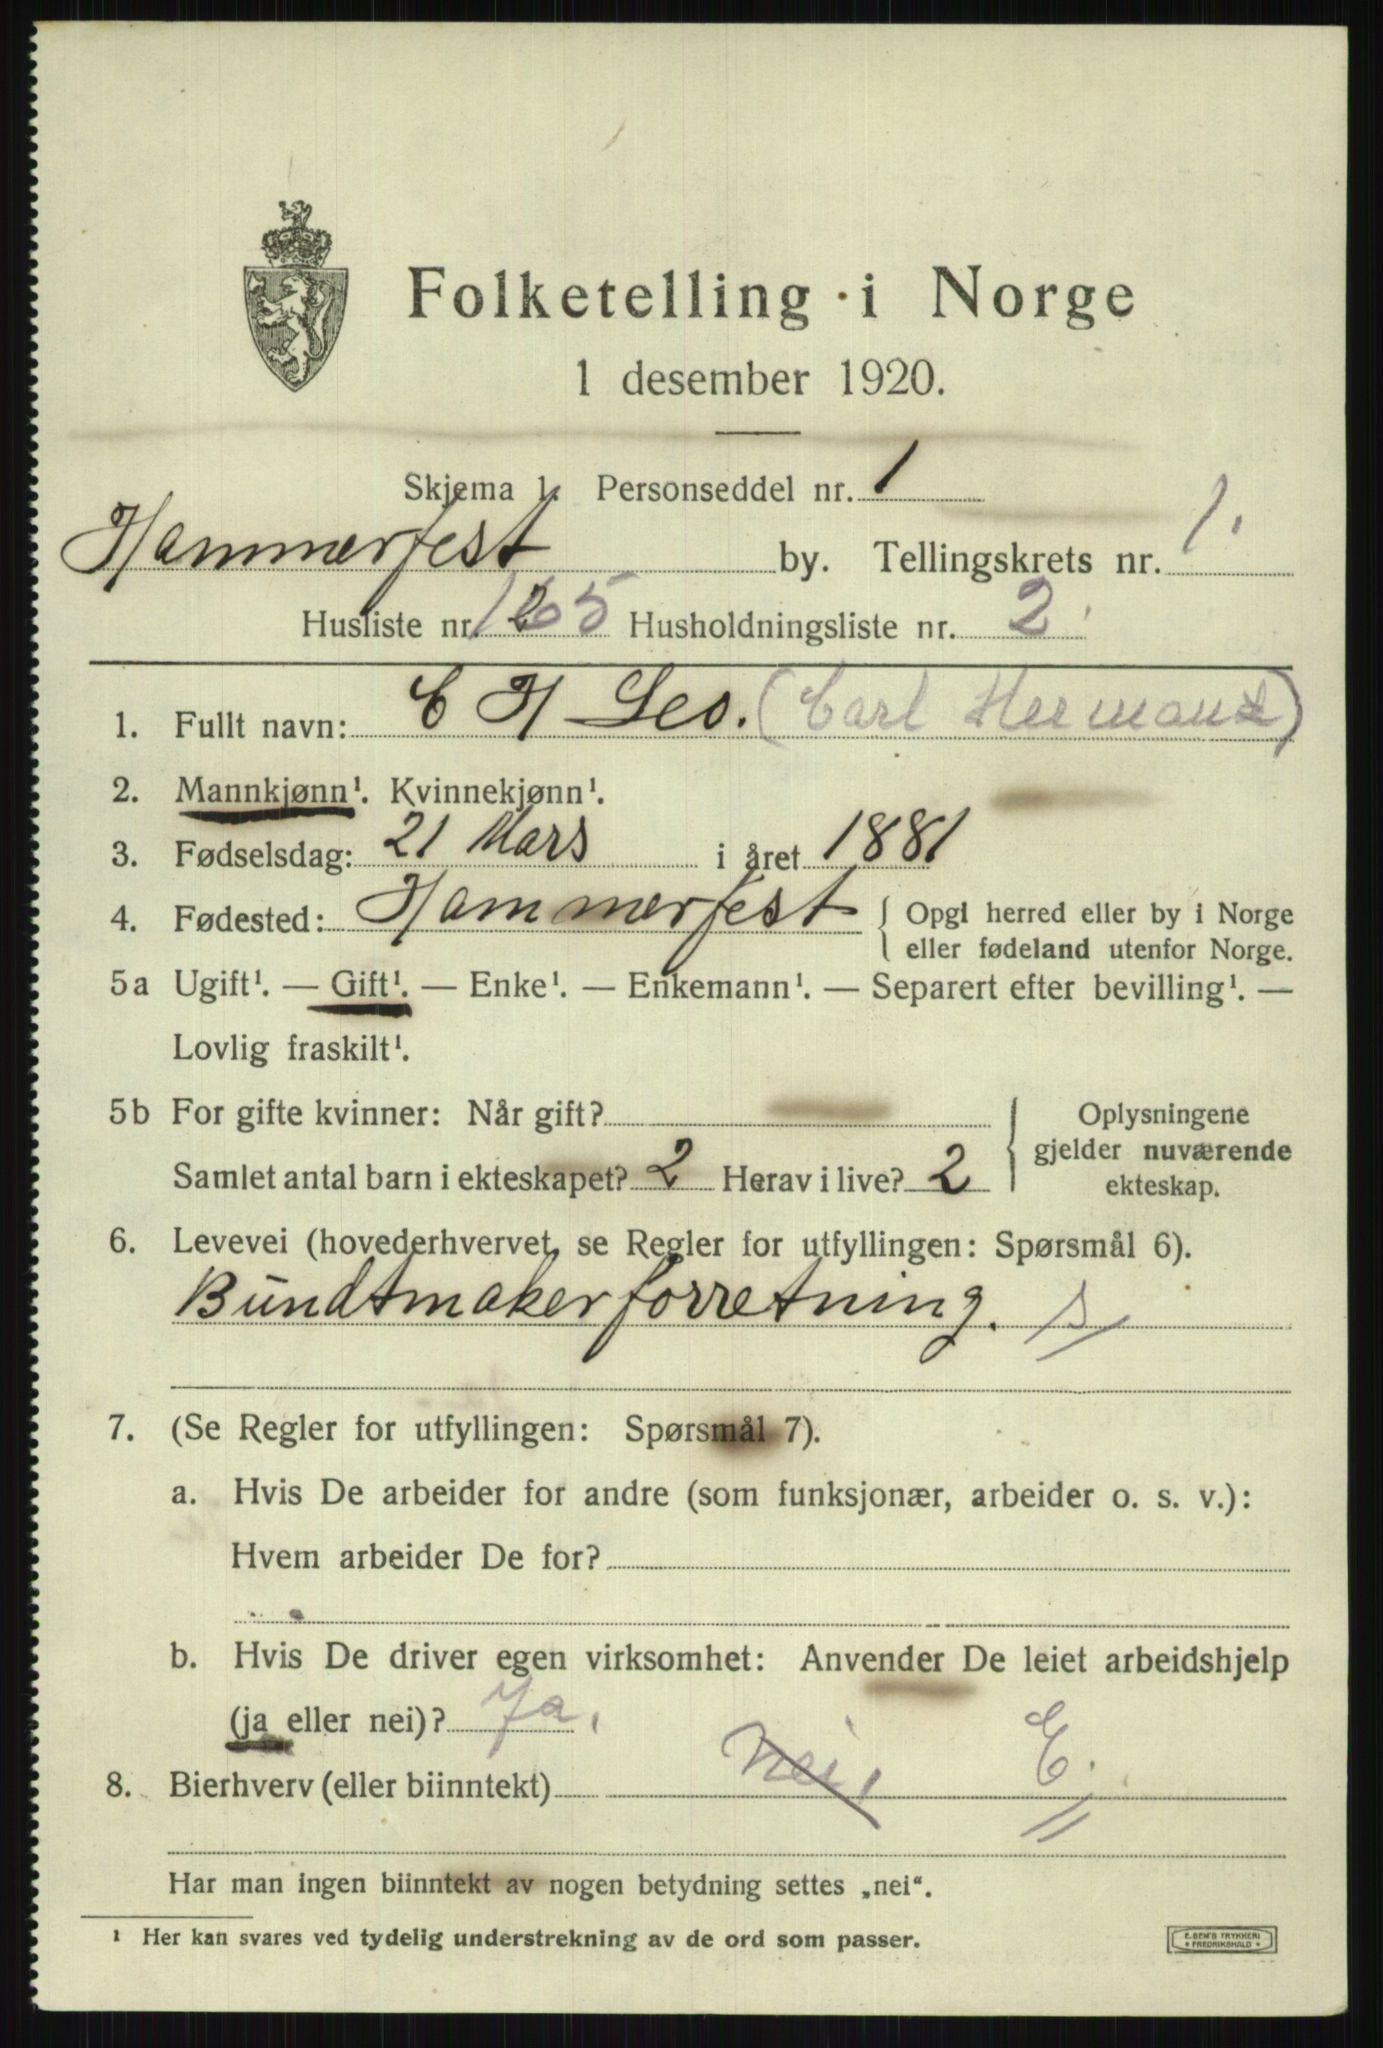 Folketelling i Norge
1 desember 1920.
Skjema 1. Personseddel nr. 1
Hammerfest by. Tellingskrets nr. 1.
Husliste nr. Husholdningsliste nr. 2
1. Fullt navn: C H Leo. (Carl Herman)
2. Mannkjønn¹. Kvinnekjønn¹.
3. Fødselsdag: 21 Mars i året 1881
4. Fødested: Hammerfest { Opgi herred eller by i Norge
eller fødeland utenfor Norge.
5a Ugift¹. — Gift¹. — Enke¹. — Enkemann¹. — Separert efter bevilling¹. —
Lovlig fraskilt¹.
5b For gifte kvinner: Når gift? { Oplysningene
gjelder nuværende
Samlet antal barn i ekteskapet? 2 Herav i live? 2
ekteskap.
6. Levevei (hovederhvervet, se Regler for utfyllingen: Spørsmål 6).
Bundtmakerforretning. s
7. (Se Regler for utfyllingen: Spørsmål 7).
a. Hvis De arbeider for andre (som funksjonær, arbeider o. s. v.):
Hvem arbeider De for?
b. Hvis De driver egen virksomhet: Anvender De leiet arbeidshjelp
(ja eller nei)? Ja.
8. Bierhverv (eller biinntekt) nei, E.
Har man ingen biinntekt av nogen betydning settes „nei".
¹ Her kan svares ved tydelig understrekning av de ord som passer.
E. SEM'S TRYKKERI
* FREDRIKSHALD *